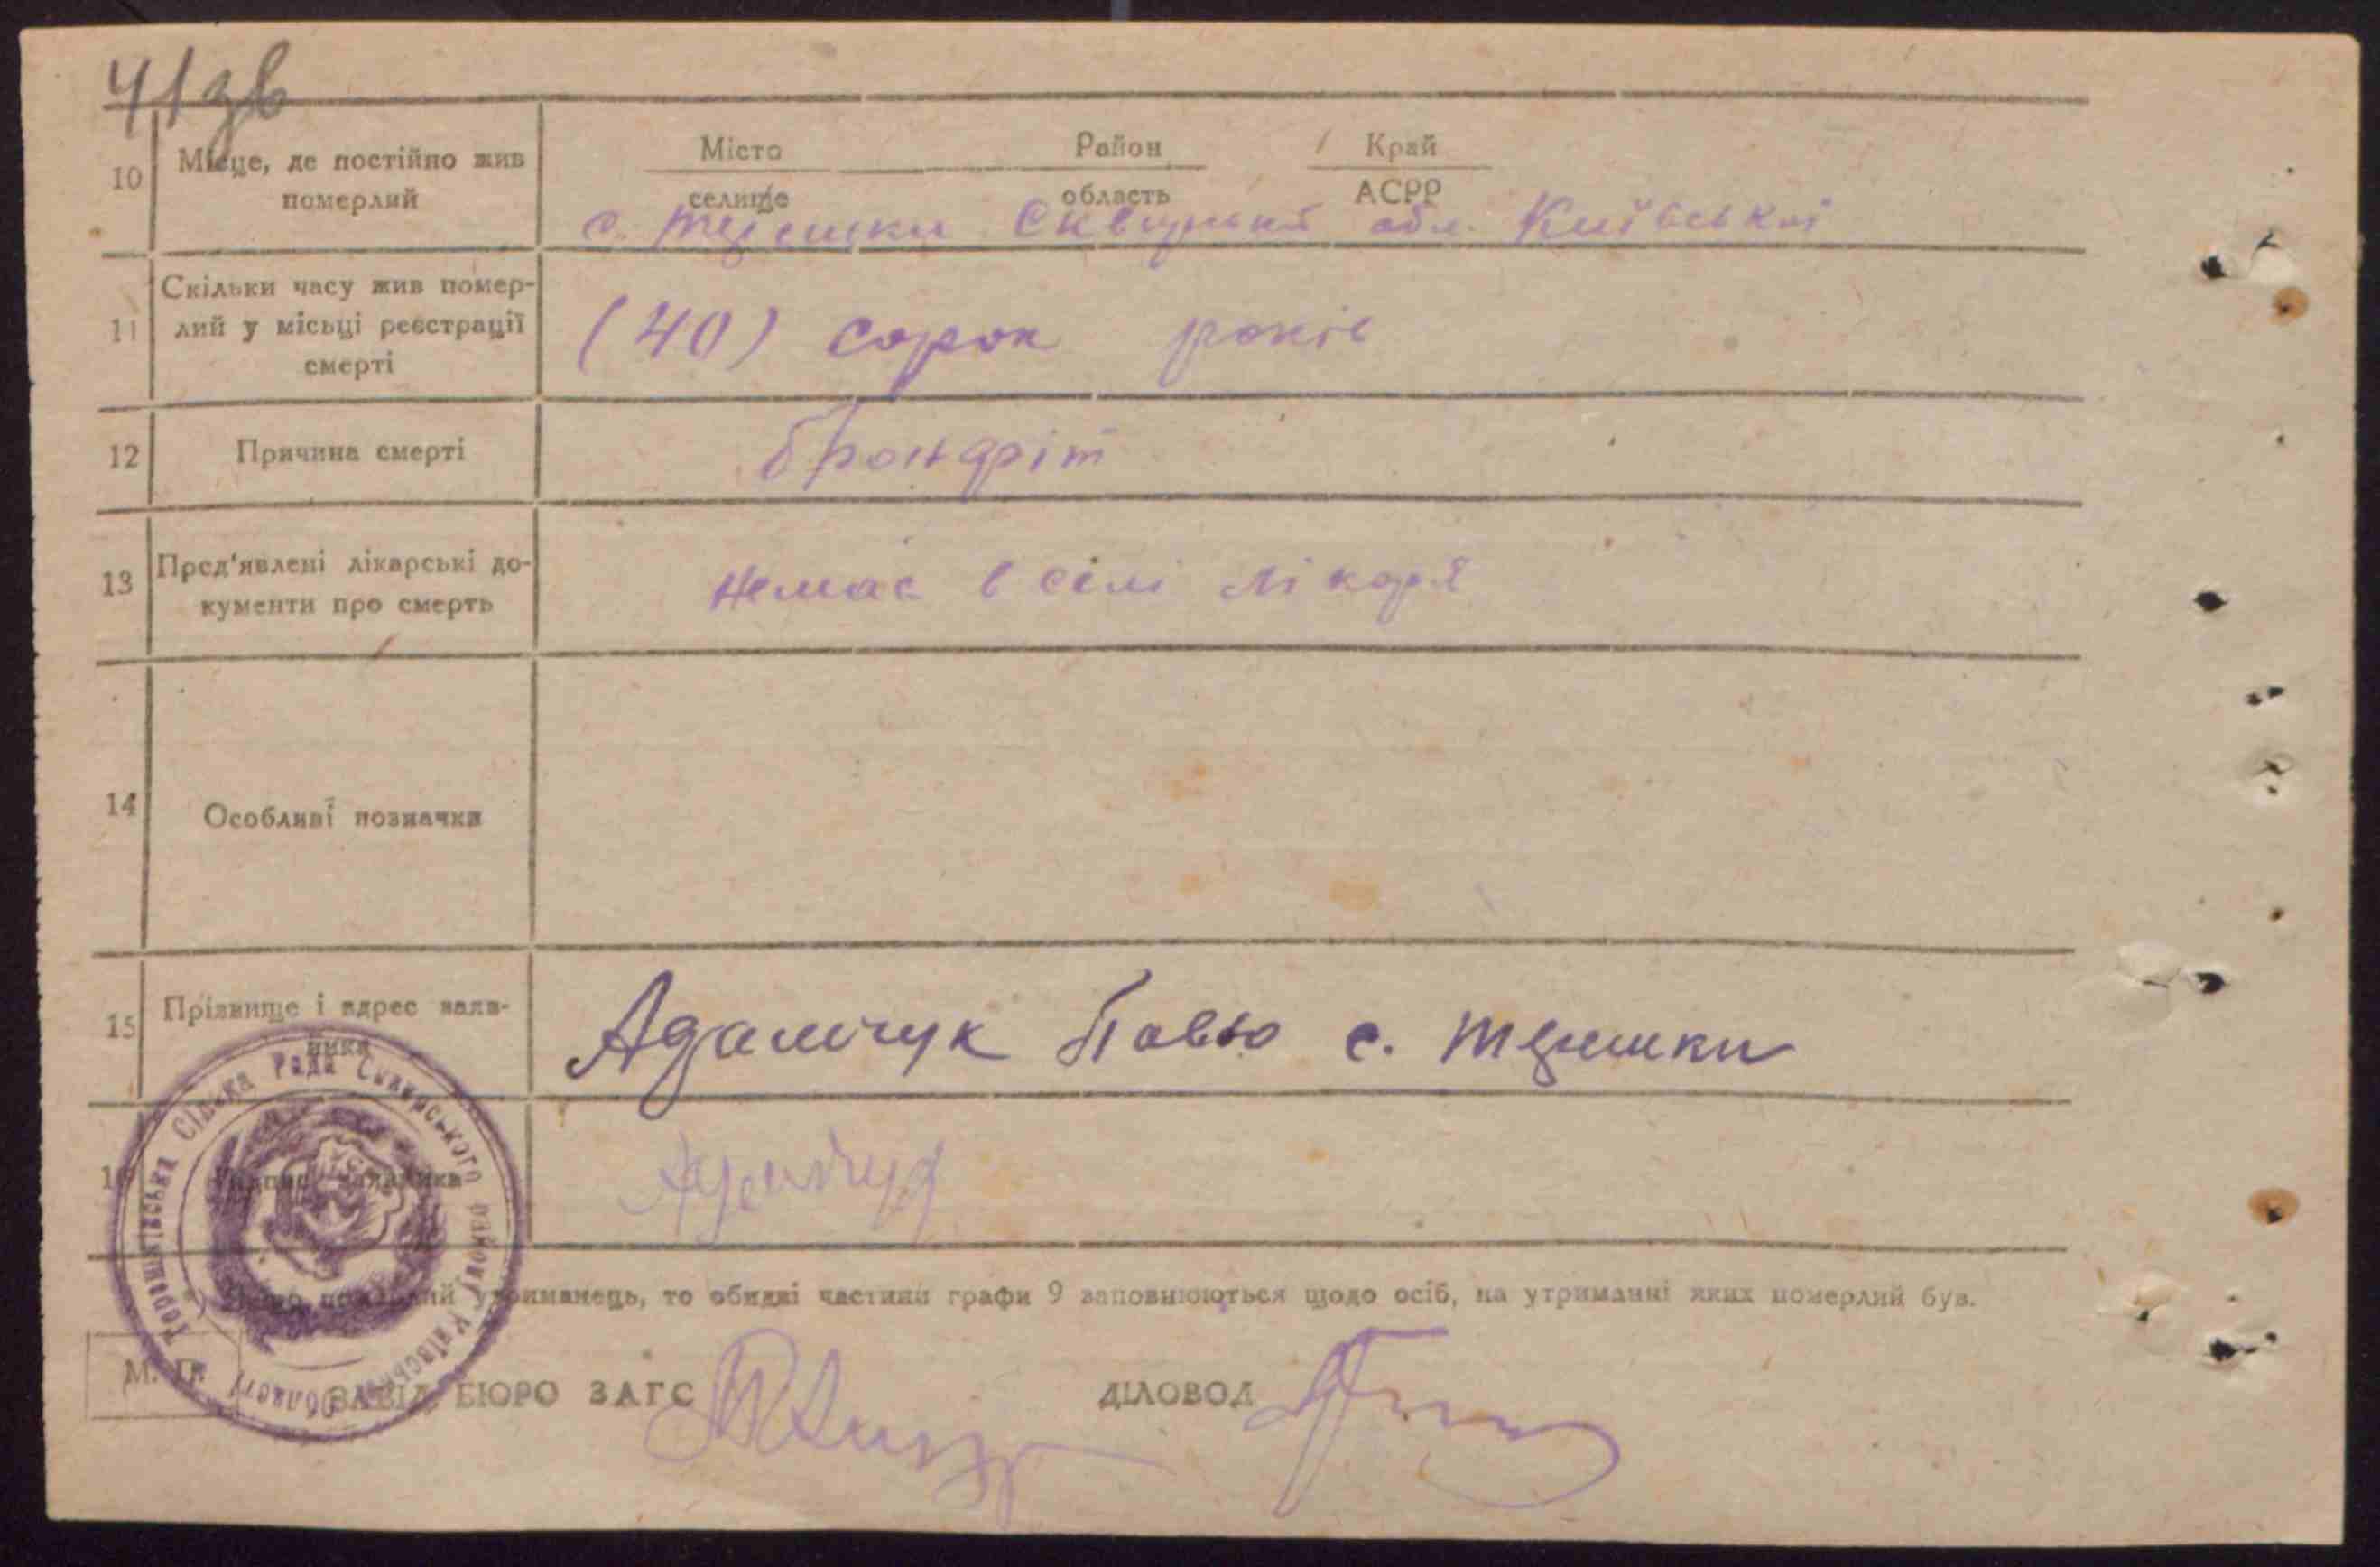 41зв
10 Місце, де постійно жив померлий
Місто Район Край
селище область АСРР
с. Терешки Сквирський обл. Київської
11 Скільки часу жив помер-
лий у місьці реєстрації
смерті
(40) сорок років
12 Причина смерті
бронхіт
13 Пред'явлені лікарські до-
кументи про смерть
немає в селі лікаря
14 Особливі позначки
15 Прізвище і адрес заяв-
ника
Адамчук Павло с. Терешки
16 Підпис заявника
Адамчук
утриманець, то обидві частини графи 9 заповнюються щодо осіб, на утриманні яких померлий був.
М. П.
ЗАВІД. БЮРО ЗАГС ДІЛОВОД
Терешківська Сільська Рада Сквирського району Київської Області